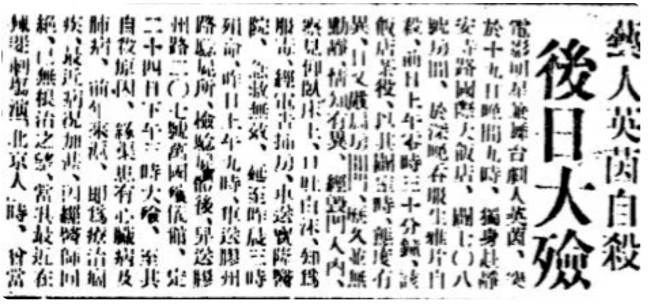 藝人英茵自殺
後日大殮
電影明星兼舞台劇人英茵、突
於十九日晚間九時、獨身赴靜
安寺路國際大飯店、闢七〇八
號房間、於深晚吞服生雅片自
殺、前日上午零時三十分鐘、該
飯店茶役、以其闢室時、態度有
異、且又房間、歷久並無
動靜、情知有異、經毀門入內、
察見仰臥床上、口吐白沫、知為
服毒、經車送寶隆醫
院、急救無效、延至昨晨三時
殞命、昨日上午九時、車送膠州
路驗屍所、檢驗屍體後舁送膠
州路二〇七號萬國殯儀館、定
二十四日下午三時大殮、至其
自殺原因、緣渠患有心臟病及
肺病、前年來滬、即為療治痼
疾、最近病況加甚、因經醫師回
絕、已無根治之望、當其最近在
璇宮劇場演「北京人」時、曾當